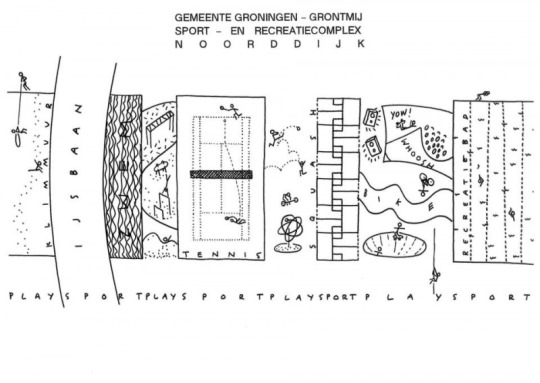 GEMEENTE GRONINGEN – GRONTMIJ
SPORT – EN RECREATIECOMPLEX
NOORDDIJK
KLIMMUUR
IJSBAAN
TENNIS
SQUASH
YOW!
WHOOSH
BIKE
RECREATIEBAD
PLAYSPORTPLAYSPORTPLAYSPORTPLAYSPORT